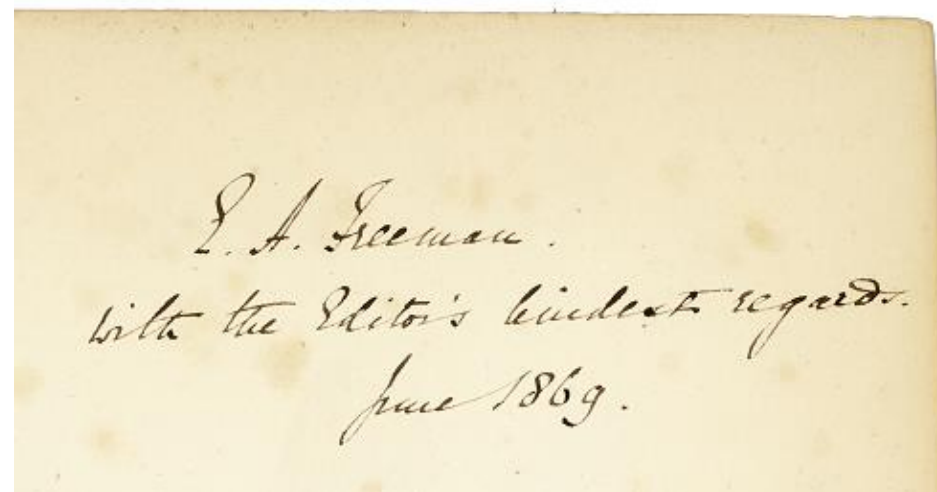 E. A. Freeman.
with the Editor's kindest regards.
June 1869.